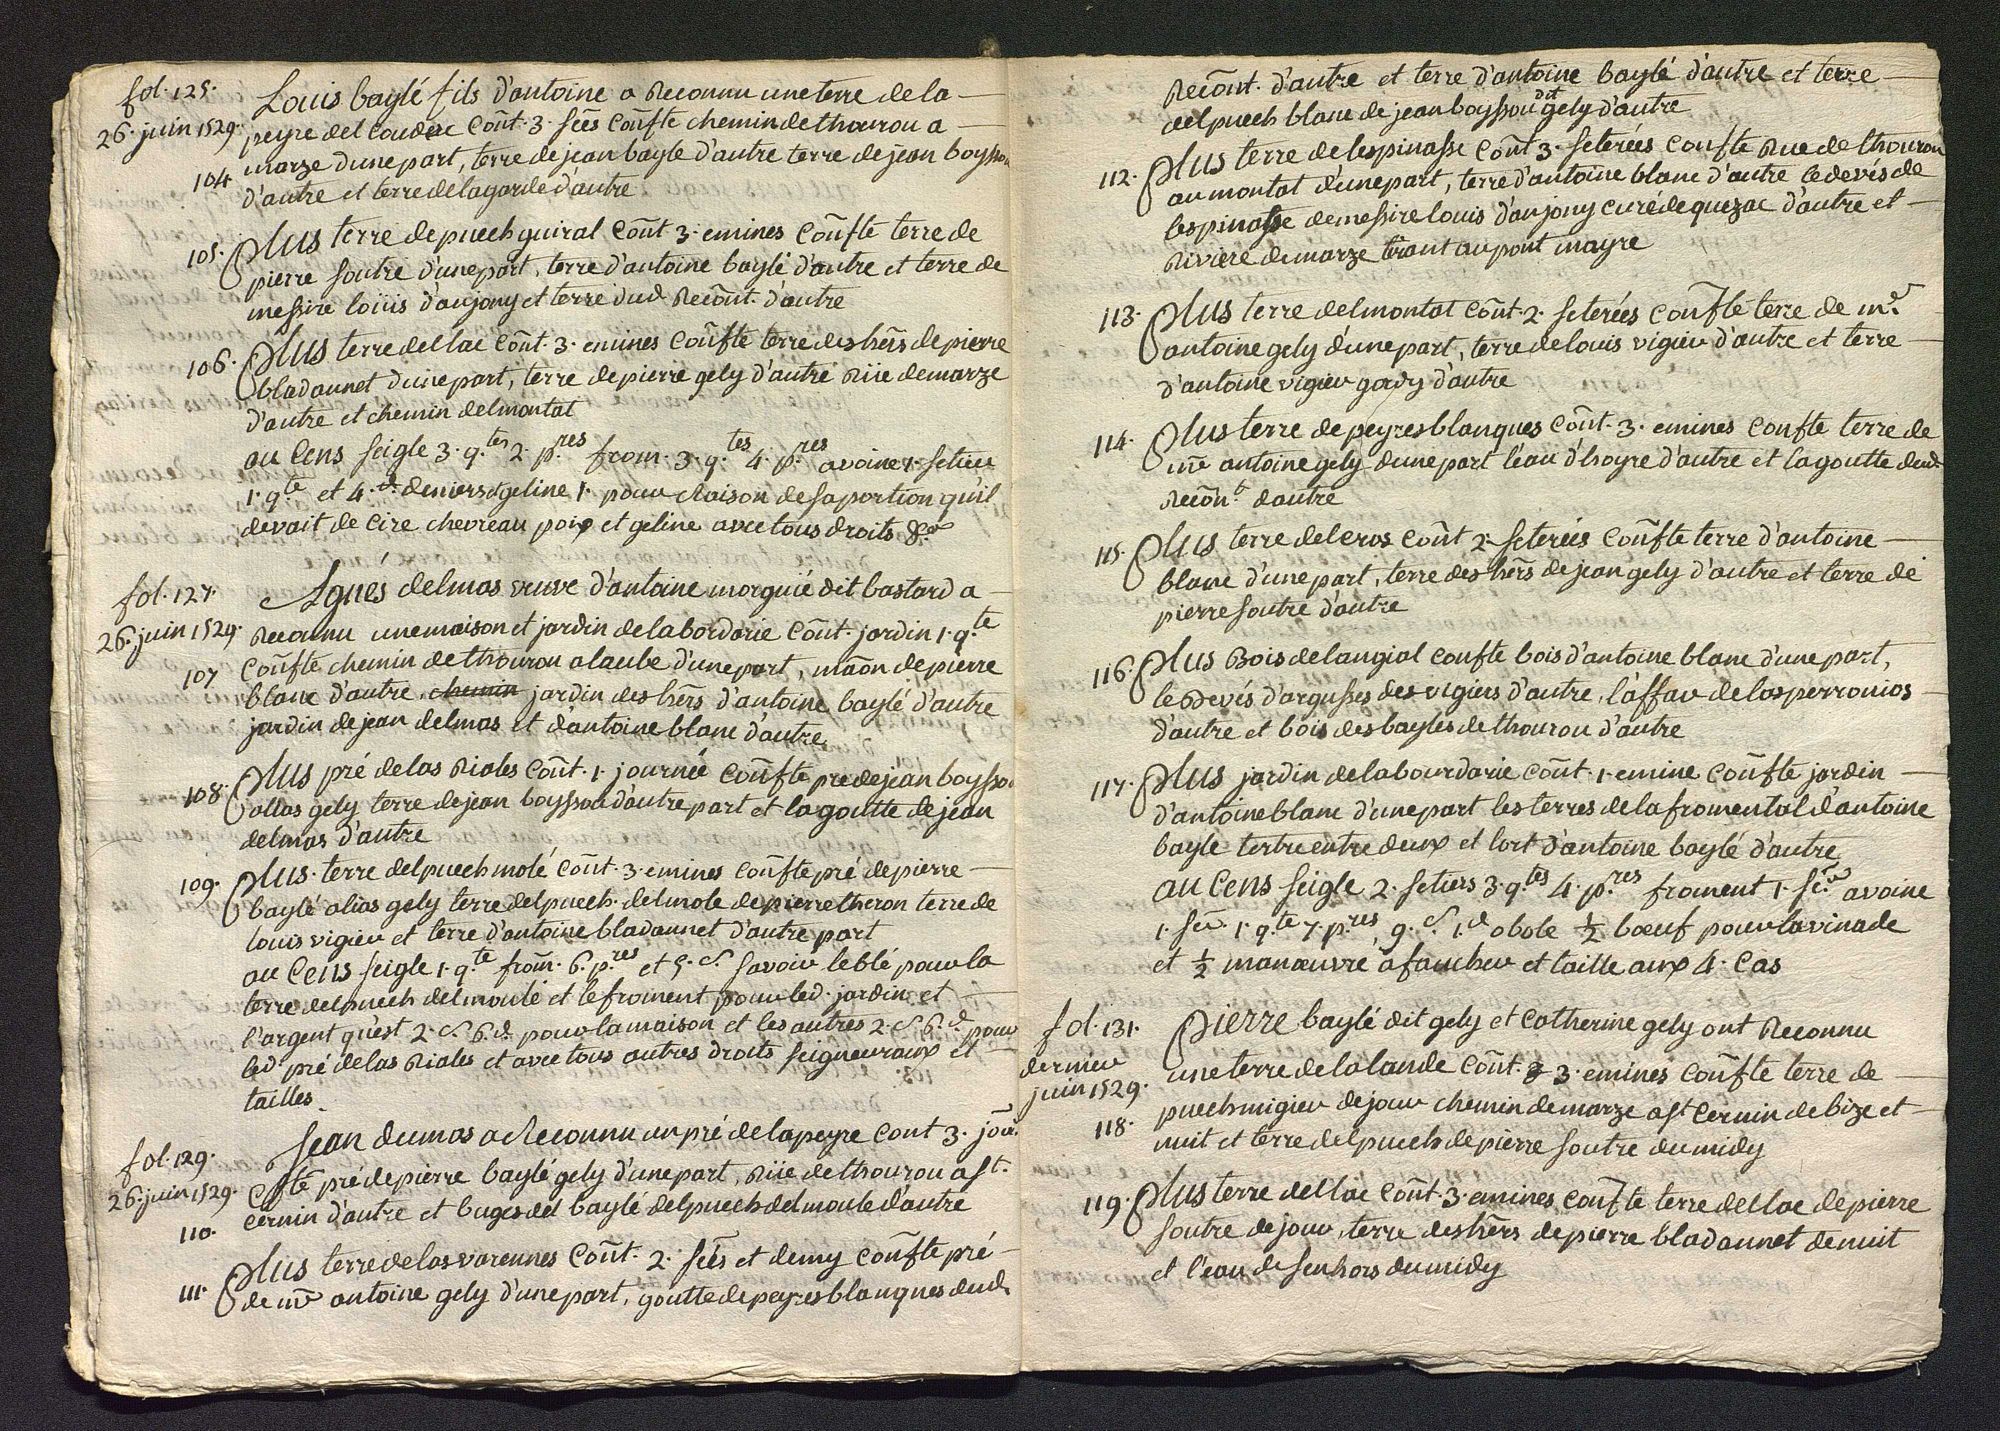 fol. 125.
26. juin 1529.
104
Louis baylé fils d'antoine a Reconnu une terre de la
peyre del coudenc Coñt. 3. sées Coñfte chemin de thourou a
marze d'une part, terre de jean bayle d'autre terre de jean boysso
d'autre et terre de lagarde d'autre
105. Plus terre de puech guiral Coñt 3. emines Coñfte terre de
pierre soutre d'une part, terre d'antoine baylé d'autre et terre de
messire loüis d'anjony et terre dud Recoñt. d'autre
106. Plus terre del lac Coñt. 3. emines Coñfte terre des hers de pierre
bladaunet d'une part, terre de pierre gely d'autre Rüe de marze
d'autre et chemin del montat
au Cens seigle 3. q.tes 2. p.res from. 3. q.tes 4. p.res avoine 1. setieu
1. q.te et 4. d. deniers et geline 1. pour Raison de sa portion qu'il
devait de Cire chevreau poix et geline avec tous droits &.a
fol. 127.
26. juin 1529.
107
Agnés delmas veuve d'antoine morguié dit bastard a
Reconnu une maison et jardin de la bordarie Coñt. jardin 1. q.te
Coñfte chemin de thourou a laube d'une part, mãon de pierre
blanc d'autre, chemin jardin des hers d'antoine baylé d'autre
jardin de jean delmas et d'antoine blanc d'autre
108. Plus pré de las Riales Coñt. 1. journée Coñfte pre de jean boysso
alias gely terre de jean boyssou d'autre part et la goutte de jean
delmas d'autre
109. Plus terre del puech molé Coñt. 3. emines Coñfte pré de pierre
baylé alias gely terre del puech del mole de pierre theron terre de
louis vigieu et terre d'antoine bladaunet d'autre part
au Cens seigle 1. q.te from. 6. p.res et 5. s. savoir le blé pour la
terre del puech del moulé et le froment pour led. jardin et
l'argent qu'est 2. s. 6. d. pour la maison et les autres 2. s. 6. d. pour
led. pré de las Riales et avec tous autres droits seigneuraux et
tailles.
fol. 129.
26. juin 1529.
110.
Jean dumas a Reconnu un pré de la peyre Cont 3. jour.
Cfte pré de pierre baylé gely d'une part, Rüe de thourou a st.
Cernin d'autre et buges del baylé del puech del moule d'autre
111. Plus terre de las varennes Coñt. 2. sées et demy Coñfte pré
de me antoine gely d'une part, goutte de peyres blanques dud
Recont. d'autre et terre d'antoine baylé d'autre et terre
del puech blanc de jean boyssou dit gely d'autre
112. Plus terre de lespinasse Coñt 3. seterées Confte Rue de thourou
au montat d'une part, terre d'antoine blanc d'autre le devés de
lespinasse de messire louis d'anjony curé de quezac d'autre et
Riviere de marze tirant au pont mayre
113. Plus terre del montat Coñt. 2. seterées Coñfte terre de me.
antoine gely d'une part, terre de louis vigieu d'autre et terre
d'antoine vigieu gordy d'autre
114. Plus terre de peyres blanques Coñt. 3. emines Confte terre de
me antoine gely d'une part l'eau d'hoyre d'autre et la goutte dud.
Recoñ.t d'autre
115. Plus terre del cros Coñt 2. seterées Coñfte terre d'antoine
blanc d'une part, terre des hers de jean gely d'autre et terre de
pierre soutre d'autre
116. Plus Bois de langial Confte bois d'antoine blanc d'une part,
le Devés d'argusses des vigiers d'autre, l'affar de las perronios
d'autre et bois des bayles de thourou d'autre
117. Plus jardin de la bourdarie Coñt. 1. emine Coñfte jardin
d'antoine blanc d'une part les terres de la fromental d'antoine
bayle tertre entre deux et l'ort d'antoine baylé d'autre
au Cens seigle 2. setiers 3. q.tes 4. p.res froment 1. se.r avoine
1. se.r 1. q.te 7. p.res 9. s. 1. d obole ½ bœuf pour la vinade
et ½ manœuvré a faucheu et taille aux 4. Cas
fol. 131.
dernieu
juin 1529.
118.
Pierre baylé dit gely et Catherine gely ont Reconnu
une terre de la lande Coñt. 3 3. emines Coñfte terre de
puech migieu de jour chemin de marze a st Cernin de bize et
nuit et terre del puech de pierre soutre du midy
119. Plus terre del lac Coñt. 3. emines Coñfte terre del lac de pierre
soutre de jour, terre des hers de pierre bladaunet de nuit
et l'eau de senhors du midy